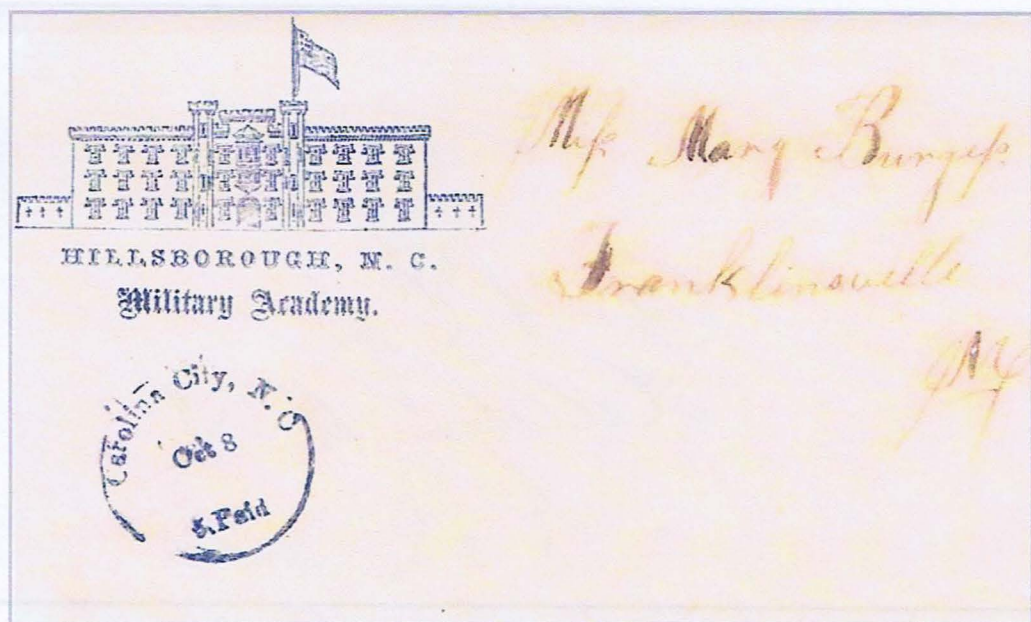 HILLSBOROUGH, N. C.
Military Academy.
Carolina City, N.C
Oct 8
5.Paid
Miss Mary Burgess
Franklinsville
NC